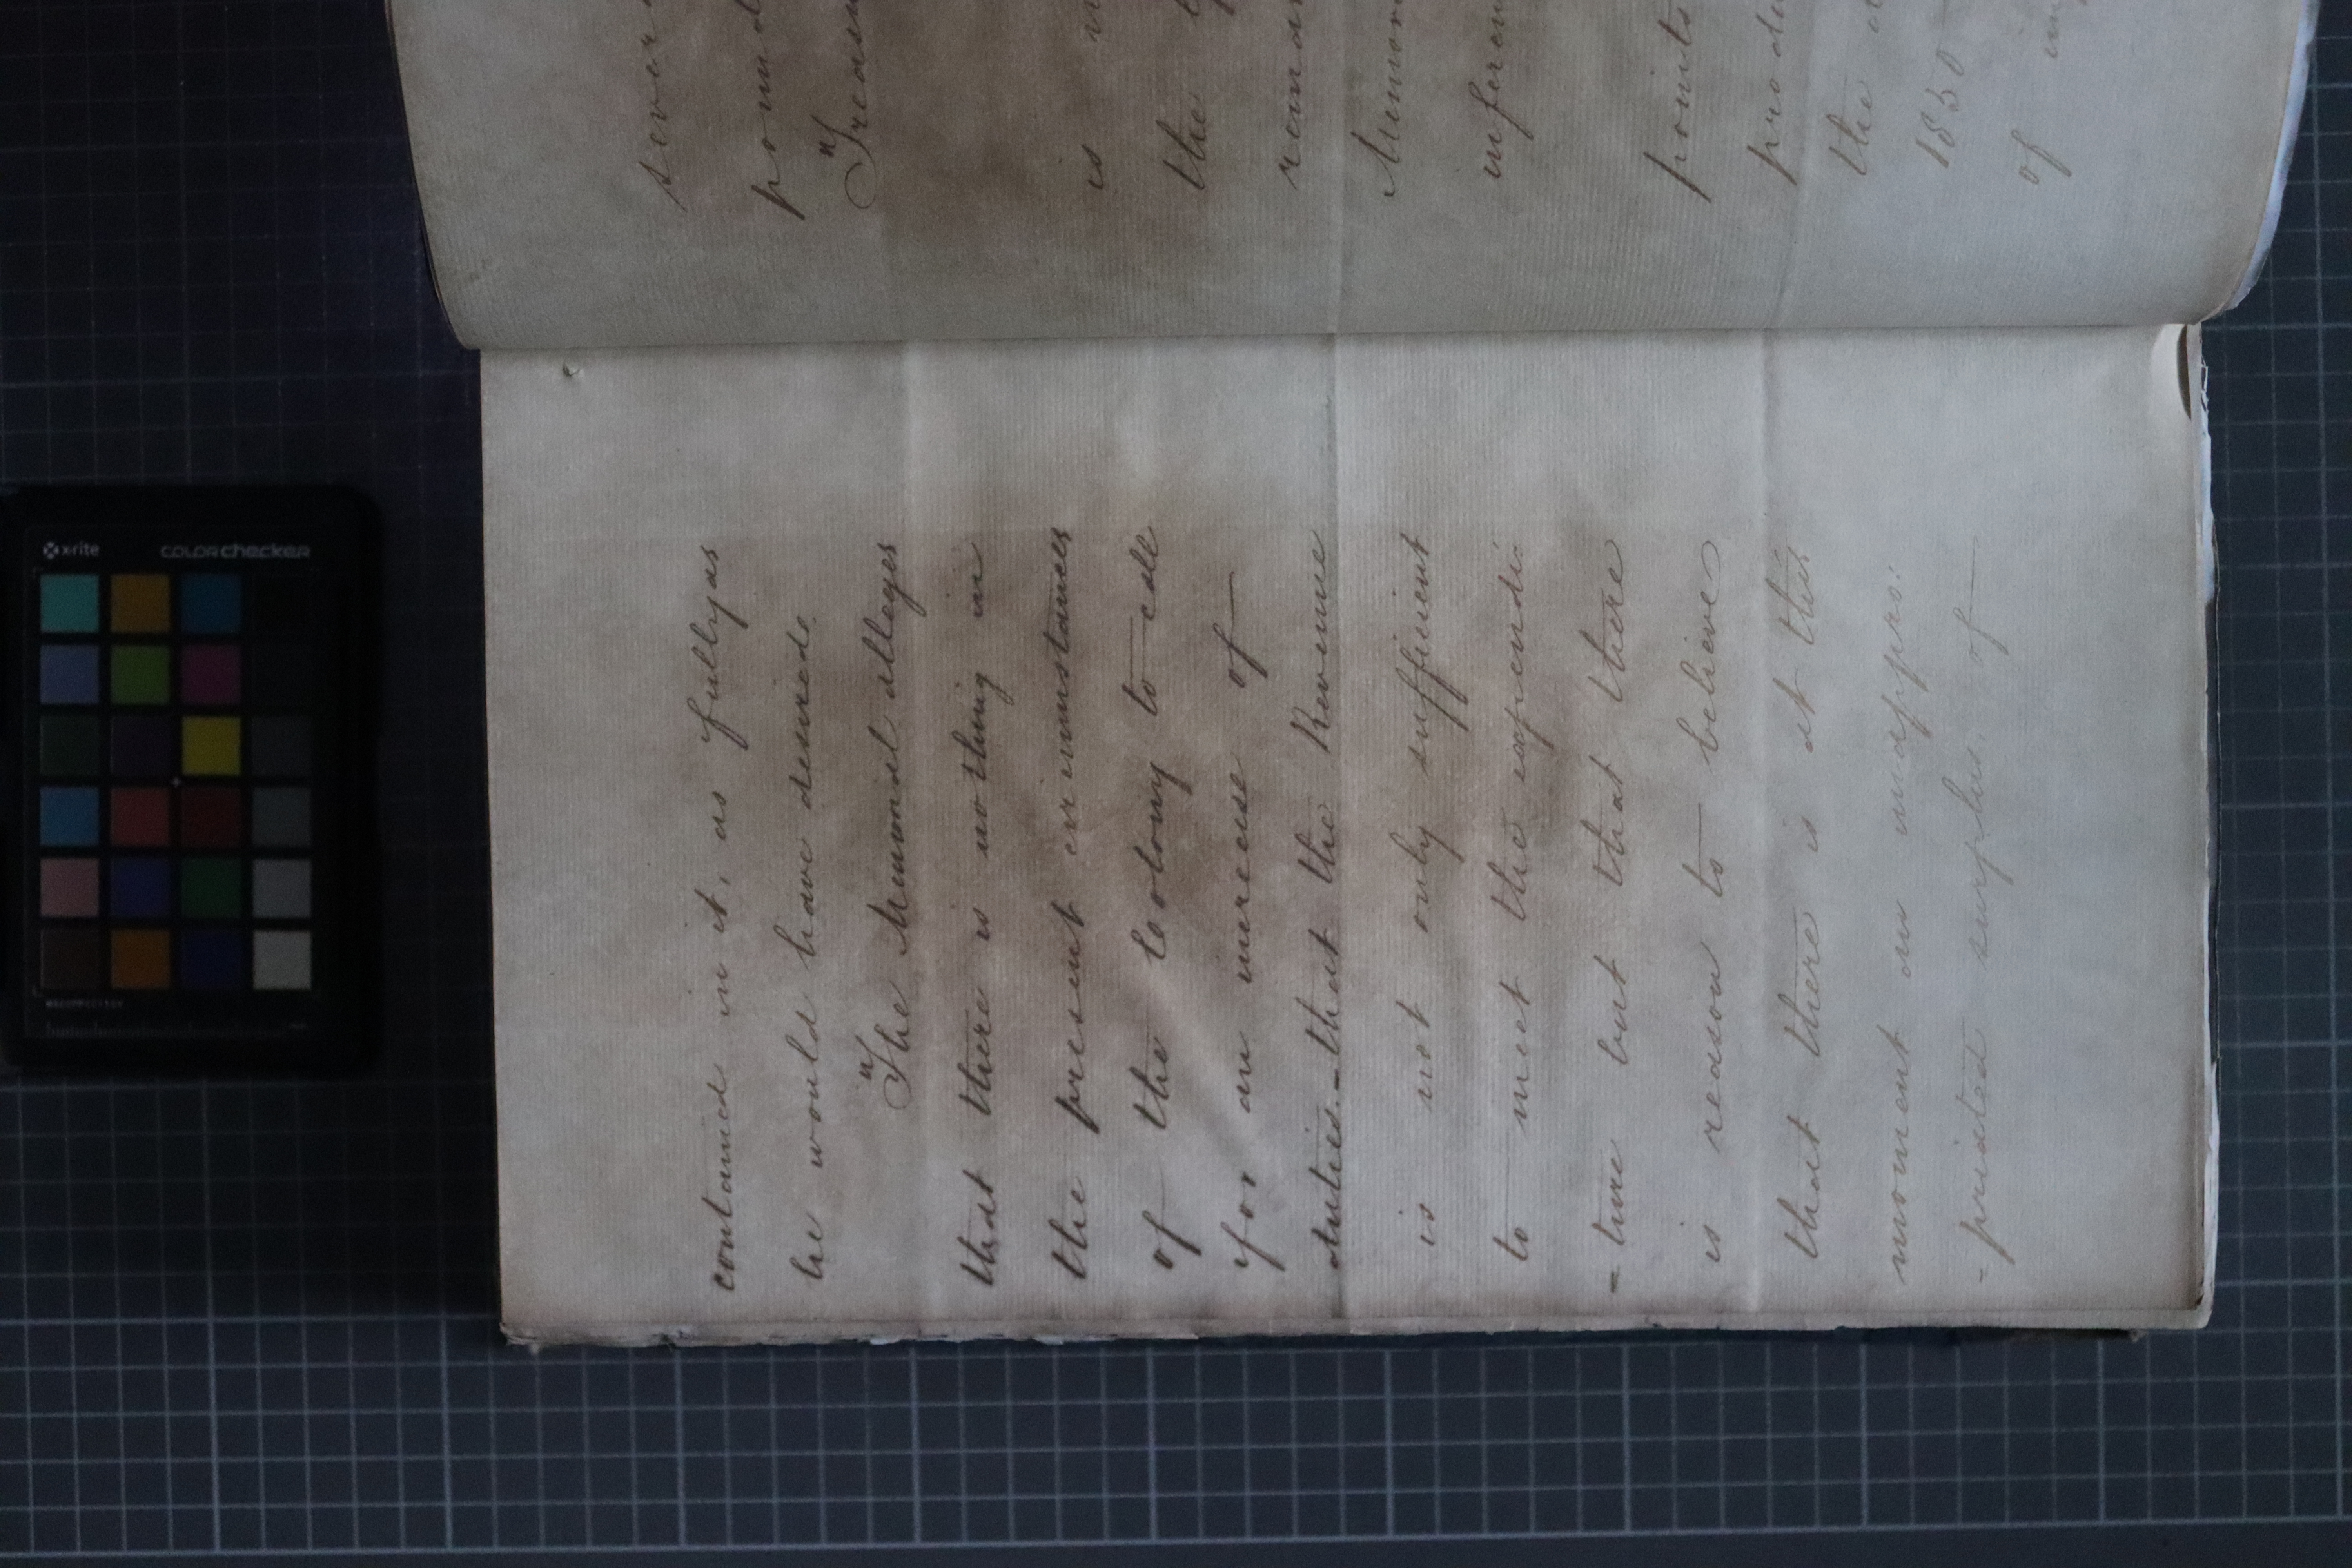 contained in it, as fully as
he would have desired.
"The Memorial alleges
that there is nothing in
the present circumstances
of the Colony to call
for an increase of
duties - that the Revenue
is not only sufficient
to meet the expendi
-ture but that there
is reason to believe
that there is at this
moment an unappro:
-priated surplus, of
pound
"Treas
is
the
remar
Memor
inferen
points
produ
the
1850
of
x-rite
colorchecker